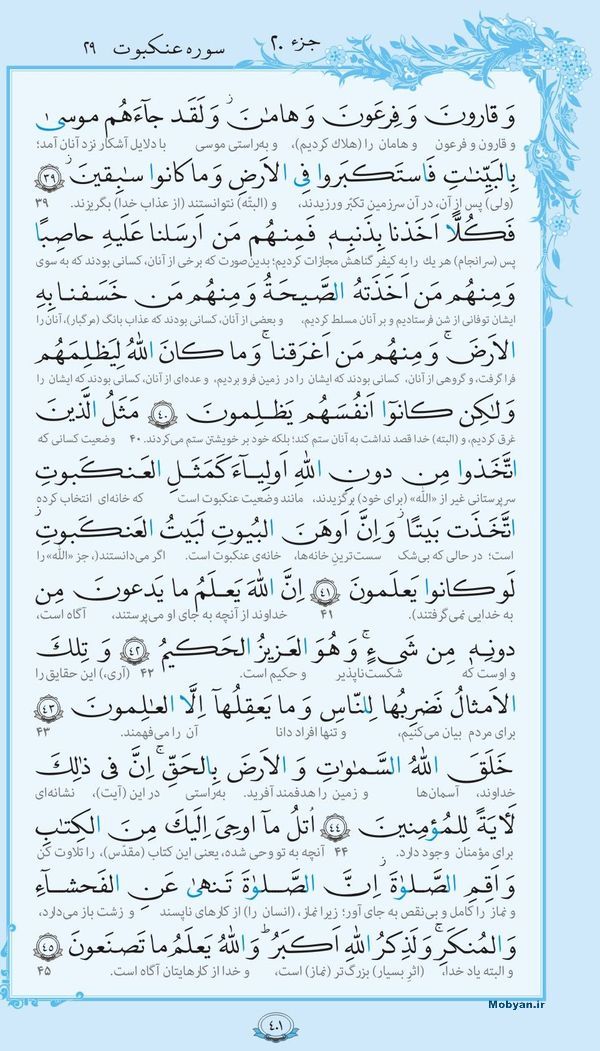 جزء ۲۰
سوره عنکبوت ۲۹
وَ قارونَ وَ فِرعَونَ وَ هامٰنَ ۖ وَ لَقَد جآءَهُم موسىٰ
و قارون و فرعون و هامان را (هلاک کردیم)، و به‌راستی موسی با دلایل آشکار نزد آنان آمد؛
بِالبَيِّنٰتِ فَاستَكبَروا فِى الاَرضِ وَ ما كانوا سٰبِقينَ ۖ ٣٩
(ولی) پس از آن، در آن سرزمین تکبّر ورزیدند، و (البتّه) نتوانستند (از عذاب خدا) بگریزند. ۳۹
فَكُلًّا اَخَذنا بِذَنبِهٖ فَمِنهُم مَن اَرسَلنا عَلَيهِ حاصِبًا
پس (سرانجام) هر یک را به کیفر گناهش مجازات کردیم؛ بدین‌صورت که برخی از آنان، کسانی بودند که به سوی
وَ مِنهُم مَن اَخَذَتهُ الصَّيحَةُ وَ مِنهُم مَن خَسَفنا بِهِ
ایشان توفانی از شن فرستادیم و بر آنان مسلط کردیم، و بعضی از آنان، کسانی بودند که عذاب بانگ (مرگبار)، آنان را
الاَرضَ ۚ وَ مِنهُم مَن اَغرَقنا ۚ وَ ما كانَ اللّٰهُ لِيَظلِمَهُم
فرا گرفت، و گروهی از آنان، کسانی بودند که ایشان را در زمین فرو بردیم، و عده‌ای از آنان، کسانی بودند که ایشان را
وَ لٰكِن كانوٓا اَنفُسَهُم يَظلِمونَ ٤٠ مَثَلُ الَّذينَ
غرق کردیم، و (البته) خدا قصد نداشت به آنان ستم کند؛ بلکه خود بر خویشتن ستم می‌کردند. ۴۰ وضعیت کسانی که
اتَّخَذوا مِن دونِ اللّٰهِ اَولِيآءَ كَمَثَلِ العَنكَبوتِ
سرپرستانی غیر از «اللّٰه» (برای خود) برگزیدند، مانند وضعیت عنکبوت است که خانه‌ای انتخاب کرده
اتَّخَذَت بَيتًا ۖ وَ اِنَّ اَوهَنَ البُيوتِ لَبَيتُ العَنكَبوتِ ۖ
است؛ در حالی که بی‌شک سست‌ترینِ خانه‌ها، خانه‌ی عنکبوت است. اگر می‌دانستند(، جز «اللّٰه» را
لَو كانوا يَعلَمونَ ٤١ اِنَّ اللّٰهَ يَعلَمُ ما يَدعونَ مِن
به خدایی نمی‌گرفتند). ۴۱ خداوند از آنچه به جای او می‌پرستند، آگاه است،
دونِهٖ مِن شَىءٍ ۚ وَ هُوَ العَزيزُ الحَكيمُ ٤٢ وَ تِلكَ
و اوست که شکست‌ناپذیر و حکیم است. ۴۲ (آری،) این حقایق را
الاَمثالُ نَضرِبُها لِلنّاسِ وَ ما يَعقِلُهآ اِلَّا العٰلِمونَ ٤٣
برای مردم بیان می‌کنیم، و تنها افراد دانا آن را می‌فهمند. ۴۳
خَلَقَ اللّٰهُ السَّمٰوٰتِ وَ الاَرضَ بِالحَقِّ ۚ اِنَّ فى ذٰلِكَ
خداوند، آسمان‌ها و زمین را هدفمند آفرید. به‌راستی در این (آیت)، نشانه‌ای
لَـٔايَةً لِلمُؤمِنينَ ٤٤ اُتلُ مآ اوحِىَ اِلَيكَ مِنَ الكِتٰبِ
برای مؤمنان وجود دارد. ۴۴ آنچه به تو وحی شده، یعنی این کتاب (مقدّس)، را تلاوت کن
وَ اَقِمِ الصَّلٰوةَ ۖ اِنَّ الصَّلٰوةَ تَنهىٰ عَنِ الفَحشآءِ
و نماز را کامل و بی‌نقص به جای آور؛ زیرا نماز، (انسان را) از کارهای ناپسند و زشت باز می‌دارد،
وَ المُنكَرِ ۗ وَ لَذِكرُ اللّٰهِ اَكبَرُ ۗ وَ اللّٰهُ يَعلَمُ ما تَصنَعونَ ٤٥
و البته یاد خدا، (اثرِ بسیار) بزرگ‌تر (نماز) است، و خدا از کارهایتان آگاه است. ۴۵
۴۰۱
Mobyan.ir